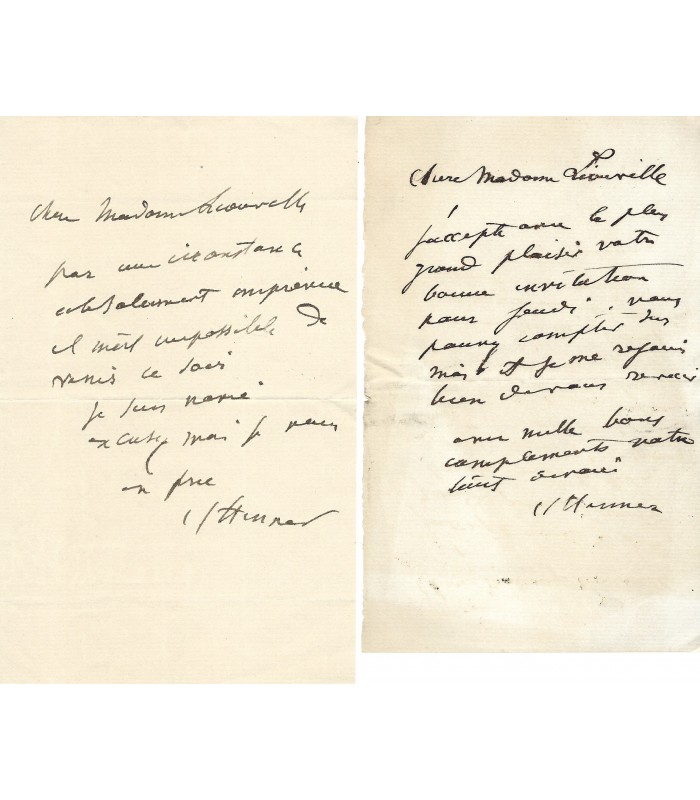 chere Madame Liouville
par une circonstance
absolument imprévue
il m'est impossible de
venir ce soir
je suis navré
excusez moi je vous
en prie
JJ Henner
Chere Madame Liouville
J'accepte avec le plus
grand plaisir votre
bonne invitation
pour jeudi, vous
pouvez compter sur
moi et je me rejouis
bien de vous revoir
avec mille bons
compliments votre
tout devoué
JJ Henner